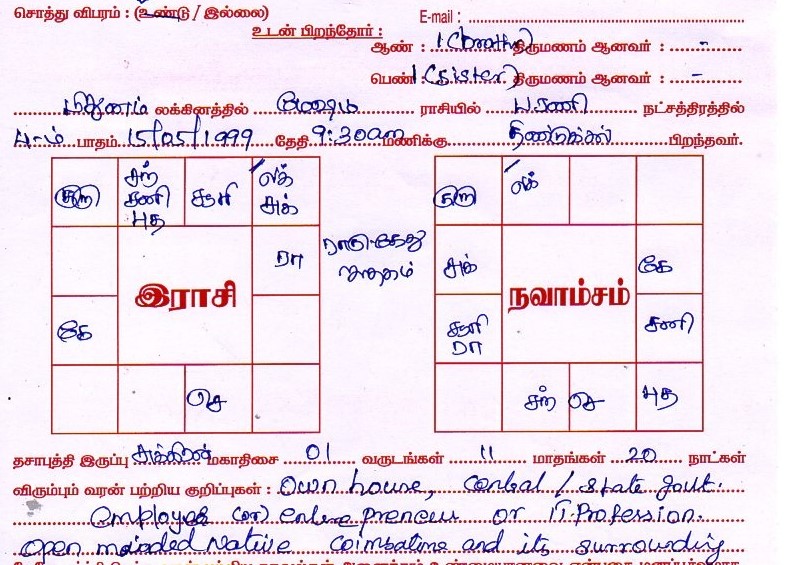 சொத்து விபரம் : (உண்டு / இல்லை)
E-mail :
உடன் பிறந்தோர் :
ஆண் : 1 (brother) திருமணம் ஆனவர் : -
பெண் 1 (sister) திருமணம் ஆனவர் : -
மிதுனம் லக்கினத்தில் மேஷம் ராசியில் பரணி நட்சத்திரத்தில்
4-ம் பாதம் 15/05/1999 தேதி 9:30am மணிக்கு திண்டுக்கல் பிறந்தவர்.
குரு சந் சனி புத சூரி லக் சுக்
ரா
கே
செ
இராசி
ராகு-கேது
குரு லக்
சுக் கே
சூரி ரா சனி
சந் செ புத
நவாம்சம்
தசாபுத்தி இருப்பு சுக்கிரன் மகாதிசை 01 வருடங்கள் 11 மாதங்கள் 20 நாட்கள்
விரும்பும் வரன் பற்றிய குறிப்புகள் : Own house, central / state govt.
employee (or) entre preneur or IT-Profession.
Open minded Native Coimbatore and its surrounding